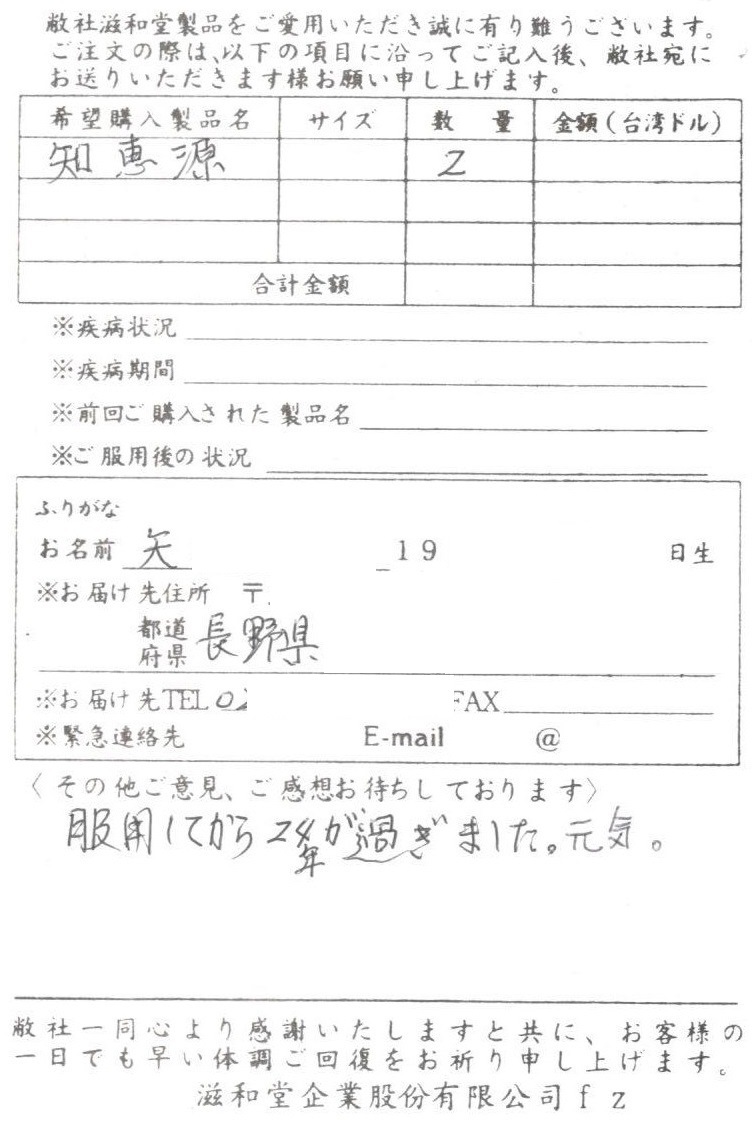 敝社滋和堂製品をご愛用いただき誠に有り難うございます。
ご注文の際は、以下の項目に沿ってご記入後、敝社宛に
お送りいただきます様お願い申し上げます。
希望購入製品名 サイズ 数量 金額(台湾ドル)
知恵源 2
合計金額
※疾病状況
※疾病期間
※前回ご購入された製品名
※ご服用後の状況
ふりがな
お名前 矢 19 日生
※お届け先住所 〒
都道府県 長野県
※お届け先TEL 02 FAX
※緊急連絡先 E-mail @
〈その他ご意見、ご感想お待ちしております〉
服用してから24年が過ぎました。元気。
敝社一同心より感謝いたしますと共に、お客様の
一日でも早い体調ご回復をお祈り申し上げます。
滋和堂企業股份有限公司fz